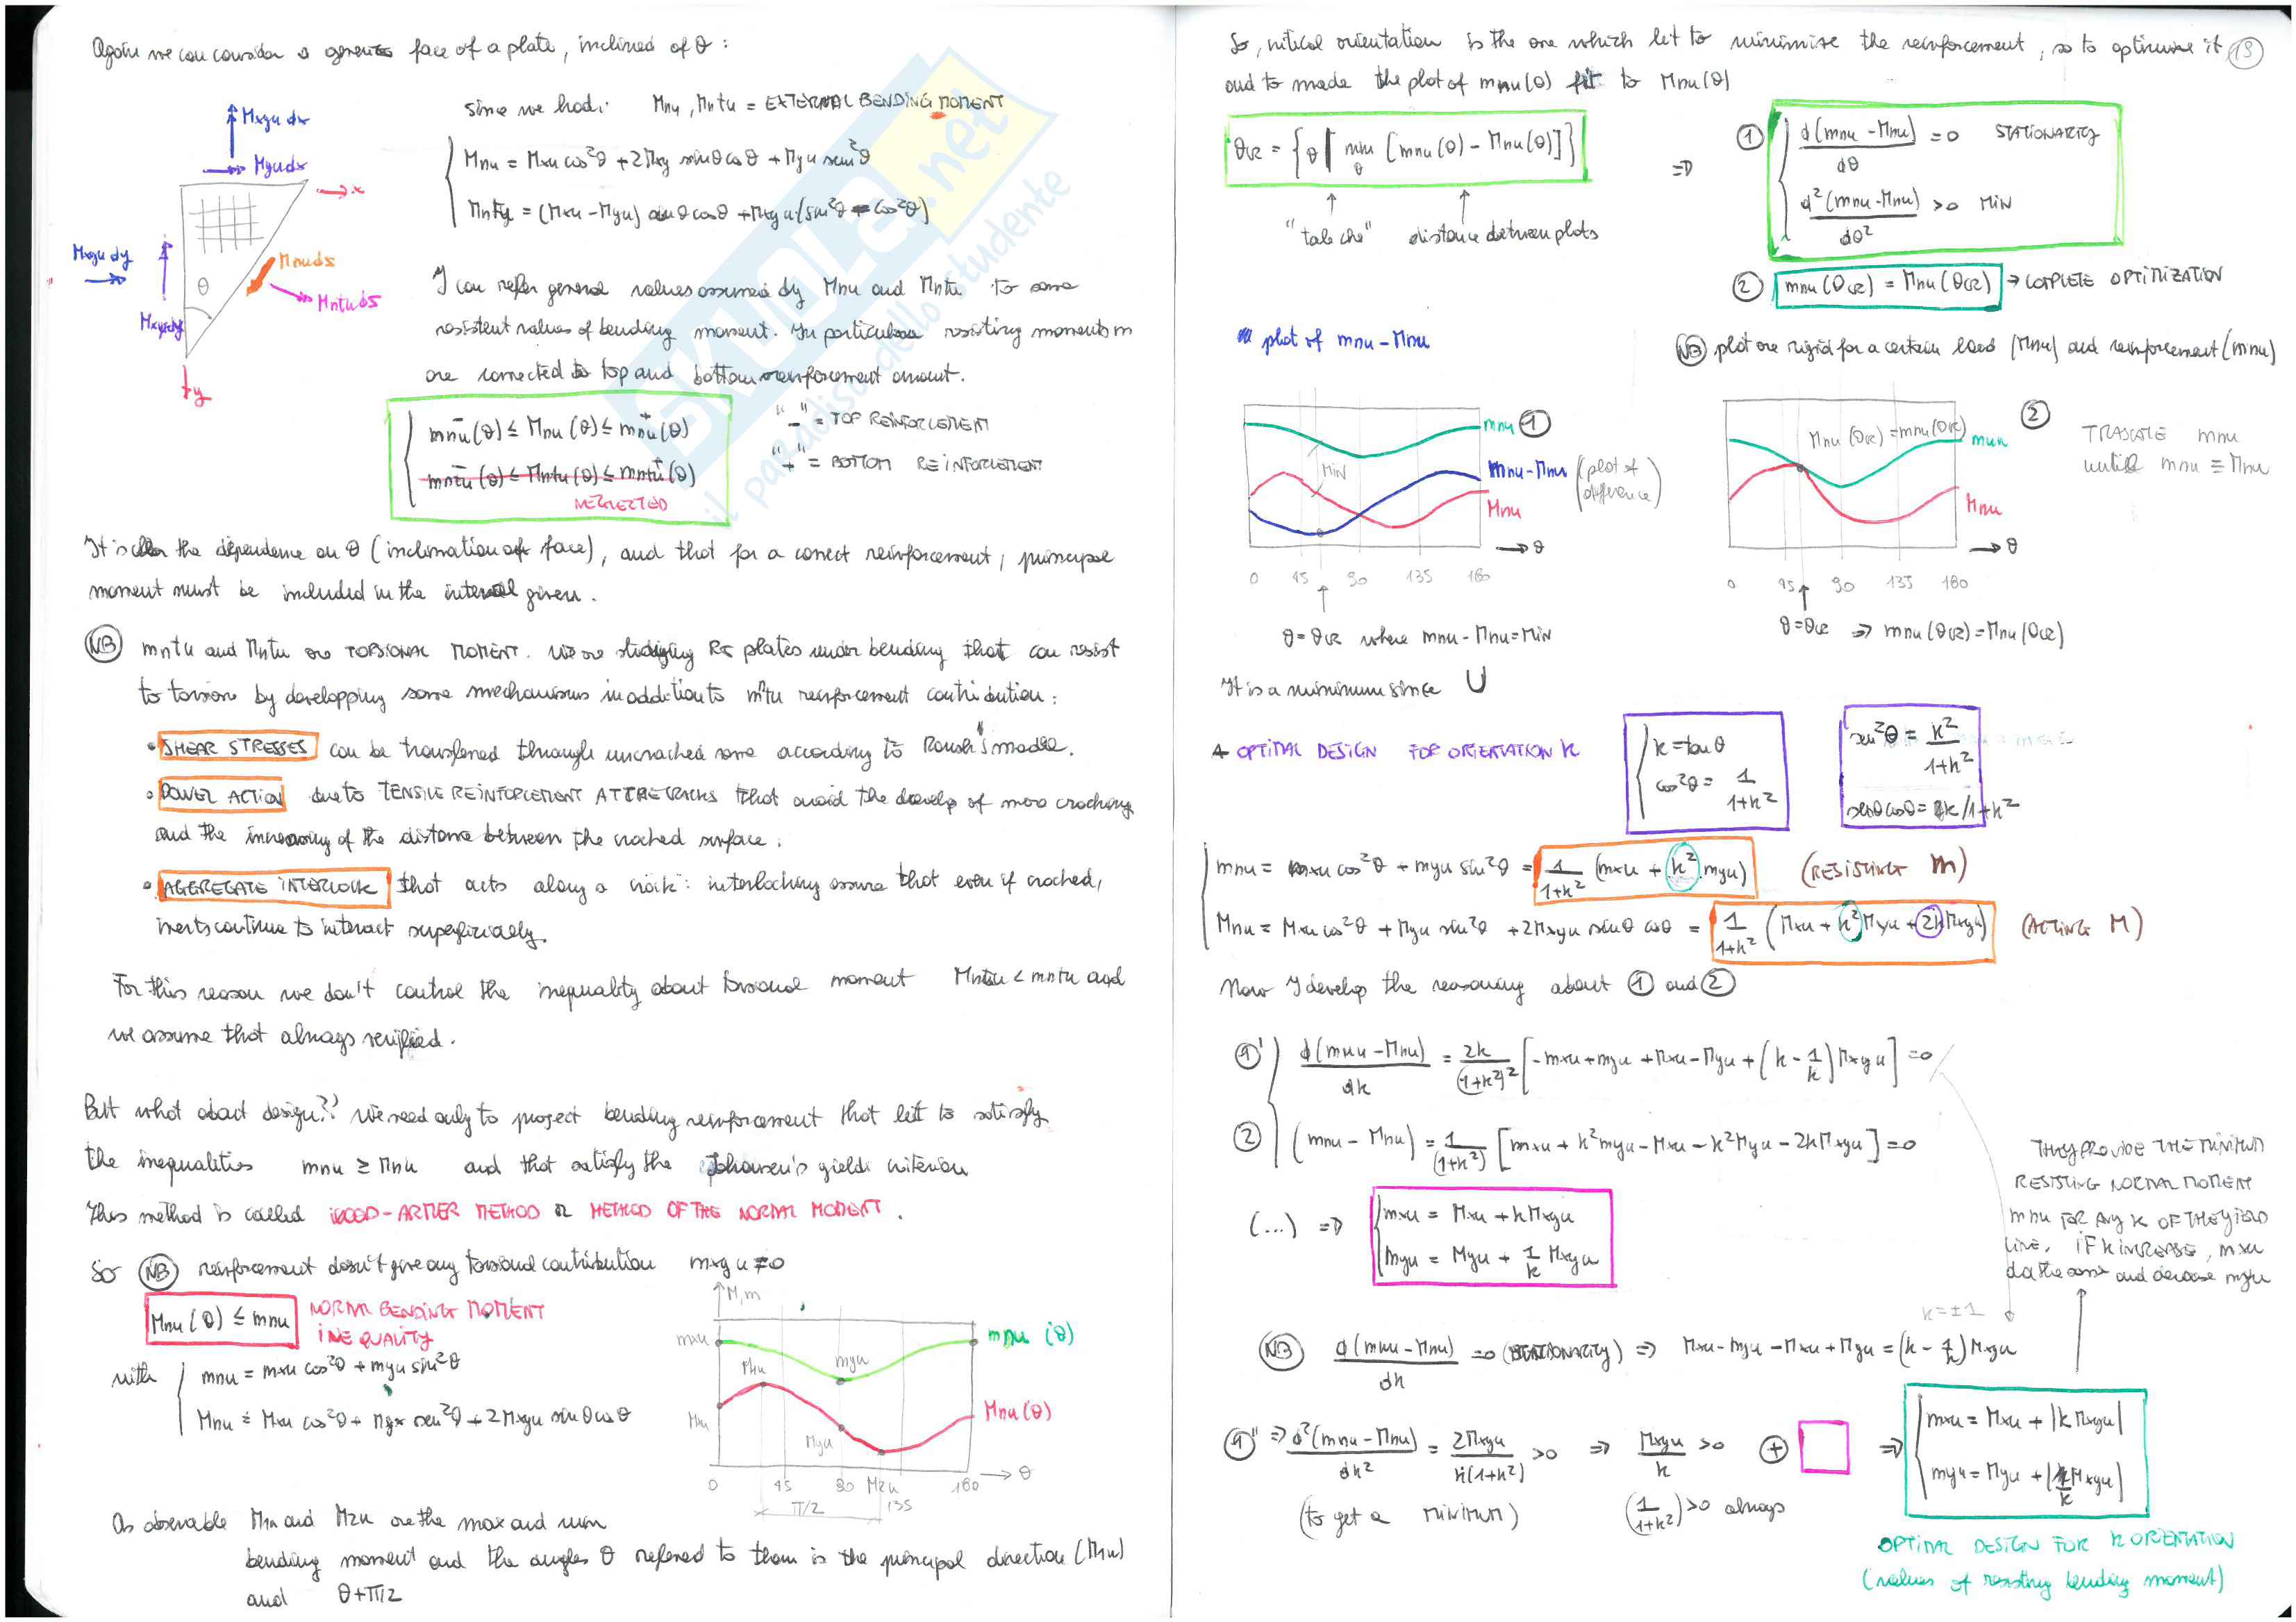 Again we can consider a generic face of a plate, inclined of θ :
Mxyu dx
Myu dx
x
Mxyu dy
θ
Mnu ds
Mntu ds
y
since we had: Mnu, Mntu = EXTERNAL BENDING MOMENT
Mnu = Mxu cos²θ + 2Mxy sinθ cosθ + Myu sen²θ
= (Mxu - Myu) sinθ cosθ + Mxyu (sin²θ - cos²θ)
I can refer general values assumed by Mnu and Mntu to some
resistent values of bending moment. In particular resisting moments m
are connected to top and bottom reinforcement amount.
mnu⁻(θ) ≤ Mnu(θ) ≤ mnu⁺(θ)
mntu⁻(θ) ≤ Mntu(θ) ≤ mntu⁺(θ)
NEGLECTED
"-" = TOP REINFORCEMENT
"+" = BOTTOM REINFORCEMENT
It is clear the dependence on θ (inclination of face), and that for a correct reinforcement, principal
moment must be included in the interval given.
NB mntu and Mntu are TORSIONAL MOMENT. We are studying RC plates under bending that can resist
to torsion by developping some mechanisms in addition to mntu reinforcement contribution :
• SHEAR STRESSES can be transferred through uncracked zone according to model.
• DOWEL ACTION due to TENSILE REINFORCEMENT AT THE CRACKS that avoid the develop of more cracking
and the increasing of the distance between the cracked surface.
• AGGREGATE INTERLOCK that acts along a crack : interlocking assure that even if cracked,
inerts continue to interact superficially.
For this reason we don't control the inequality about torsional moment Mntu < mntu and
we assume that always verified.
But what about design?? We need only to project bending reinforcement that let to satisfy
the inequalities mnu ≥ Mnu and that satisfy the Johansen's yield criterion
This method is called WOOD-ARMER METHOD or METHOD OF THE NORMAL MOMENT.
So NB reinforcement doesn't give any torsional contribution mxyu = 0
Mnu(θ) ≤ mnu NORMAL BENDING MOMENT
INEQUALITY
with mnu = mxu cos²θ + myu sin²θ
Mnu = Mxu cos²θ + Myx sen²θ + 2Mxyu sinθ cosθ
M, m
mxu
myu
mnu (θ)
M1u
Mxu
Myu
Mnu (θ)
0 45 90 M2u 135 180 θ
π/2
As observable M1u and M2u are the max and min
bending moment and the angles θ refered to them is the principal direction (M1u)
and θ+π/2
So, critical orientation is the one which let to minimise the reinforcement, so to optimise it 19
and to made the plot of mnu(θ) fit to Mnu(θ)
θCR = {θ | min θ [mnu(θ) - Mnu(θ)]}
"tale che" distance between plots
⇒ 1 d(mnu - Mnu)/dθ = 0 STATIONARITY
d²(mnu - Mnu)/dθ² > 0 MIN
2 mnu(θCR) = Mnu(θCR) → COMPLETE OPTIMIZATION
plot of mnu - Mnu
NB plot are rigid for a certain load (Mnu) and reinforcement (mnu)
mnu 1
MIN
mnu - Mnu (plot of difference)
Mnu
θ
0 45 90 135 180
θ = θCR where mnu - Mnu = MIN
Mnu(θCR) = mnu(θCR)
2
mnu
Mnu
θ
0 45 90 135 180
θ = θCR ⇒ mnu(θCR) = Mnu(θCR)
TRASLATE mnu
until mnu ≡ Mnu
It is a minimum since ∪
OPTIMAL DESIGN FOR ORIENTATION k
k = tanθ
cos²θ = 1/(1+k²)
sen²θ = k²/(1+k²)
senθ cosθ = k/1+k²
mnu = mxu cos²θ + myu sin²θ = 1/(1+k²) (mxu + k² myu) (RESISTING m)
Mnu = Mxu cos²θ + Myu sin²θ + 2Mxyu sinθ cosθ = 1/(1+k²) (Mxu + k² Myu + 2k Mxyu) (ACTING M)
Now I develop the reasoning about 1 and 2
1' d(mnu - Mnu)/dk = 2k/(1+k²)² [-mxu + myu + Mxu - Myu + (k - 1/k) Mxyu] = 0
2 (mnu - Mnu) = 1/(1+k²) [mxu + k² myu - Mxu - k² Myu - 2k Mxyu] = 0
(...) ⇒ mxu = Mxu + k Mxyu
myu = Myu + 1/k Mxyu
THEY PROVIDE THE MINIMUM
RESISTING NORMAL MOMENT
mnu FOR ANY k OF THE YIELD
LINE. IF k INCREASE, mxu
do the same and decrease myu
k = ±1
NB d(mnu - Mnu)/dk = 0 (STATIONARITY) ⇒ mxu - myu - Mxu + Myu = (k - 1/k) Mxyu
1'' ⇒ d²(mnu - Mnu)/dk² = 2Mxyu/k(1+k²) > 0 ⇒ Mxyu/k > 0 + ⇒ mxu = Mxu + |k Mxyu|
myu = Myu + |1/k Mxyu|
(to get a MINIMUM) (1/1+k²) > 0 always
OPTIMAL DESIGN FOR k ORIENTATION
(values of resisting bending moment)
SKUOLA.net
il paradiso dello studente